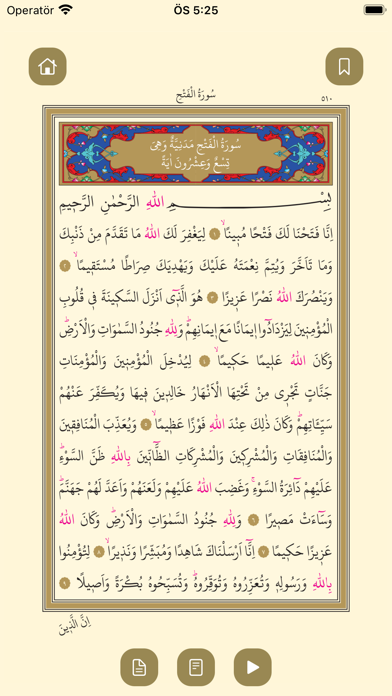 Operatör ÖS 5:25
سُورَةُ الْفَتْحِ ٥١٠
سُورَةُ الْفَتْحِ مَدَنِيَّةٌ وَهِيَ
تِسْعٌ وَعِشْرُونَ اٰيَةً
بِسْــــــمِ اللّٰهِ الرَّحْمٰنِ الرَّحٖيمِ
اِنَّا فَتَحْنَا لَكَ فَتْحًا مُبٖينًاۙ ١ لِيَغْفِرَ لَكَ اللّٰهُ مَا تَقَدَّمَ مِنْ ذَنْبِكَ
وَمَا تَاَخَّرَ وَيُتِمَّ نِعْمَتَهُ عَلَيْكَ وَيَهْدِيَكَ صِرَاطًا مُسْتَقٖيمًاۙ ٢
وَيَنْصُرَكَ اللّٰهُ نَصْرًا عَزٖيزًا ٣ هُوَ الَّذٖٓي اَنْزَلَ السَّكٖينَةَ فٖي قُلُوبِ
الْمُؤْمِنٖينَ لِيَزْدَادُٓوا اٖيمَانًا مَعَ اٖيمَانِهِمْؕ وَلِلّٰهِ جُنُودُ السَّمٰوَاتِ وَالْاَرْضِؕ
وَكَانَ اللّٰهُ عَلٖيمًا حَكٖيمًاۙ ٤ لِيُدْخِلَ الْمُؤْمِنٖينَ وَالْمُؤْمِنَاتِ
جَنَّاتٍ تَجْرٖي مِنْ تَحْتِهَا الْاَنْهَارُ خَالِدٖينَ فٖيهَا وَيُكَفِّرَ عَنْهُمْ
سَيِّـَٔاتِهِمْؕ وَكَانَ ذٰلِكَ عِنْدَ اللّٰهِ فَوْزًا عَظٖيمًاۙ ٥ وَيُعَذِّبَ الْمُنَافِقٖينَ
وَالْمُنَافِقَاتِ وَالْمُشْرِكٖينَ وَالْمُشْرِكَاتِ الظَّٓانّٖينَ بِاللّٰهِ ظَنَّ السَّوْءِؕ
عَلَيْهِمْ دَٓائِرَةُ السَّوْءِۚ وَغَضِبَ اللّٰهُ عَلَيْهِمْ وَلَعَنَهُمْ وَاَعَدَّ لَهُمْ جَهَنَّمَؕ
وَسَٓاءَتْ مَصٖيرًا ٦ وَلِلّٰهِ جُنُودُ السَّمٰوَاتِ وَالْاَرْضِؕ وَكَانَ اللّٰهُ
عَزٖيزًا حَكٖيمًا ٧ اِنَّٓا اَرْسَلْنَاكَ شَاهِدًا وَمُبَشِّرًا وَنَذٖيرًاۙ ٨ لِتُؤْمِنُوا
بِاللّٰهِ وَرَسُولِهٖ وَتُعَزِّرُوهُ وَتُوَقِّرُوهُؕ وَتُسَبِّحُوهُ بُكْرَةً وَاَصٖيلًا ٩
اِنَّ الَّذٖينَ